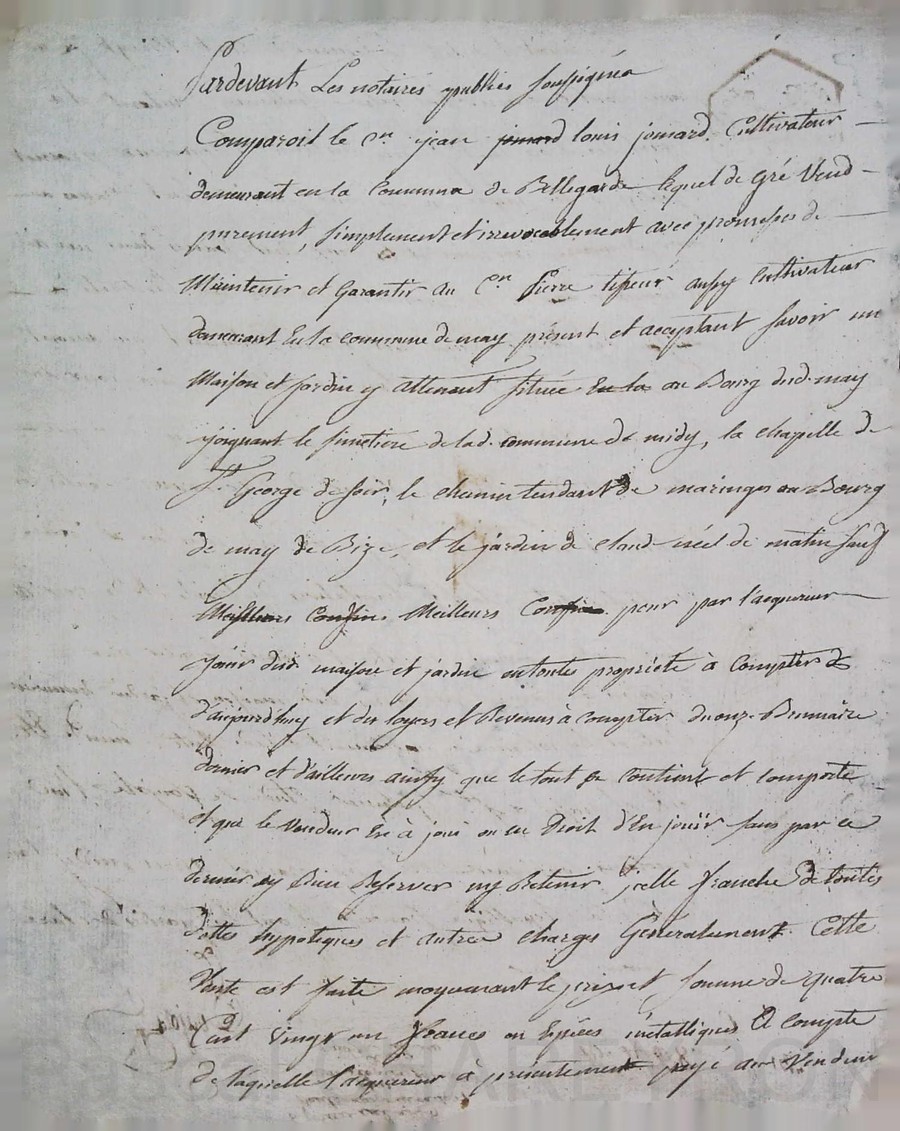 Pardevant Les notaires publics soussignés
Comparoit le Cen jean jomard louis jomard Cultivateur
demeurant en la Commune de Bellegarde lequel de gré Vend
purement, simplement et irrevocablement avec promesses de
Maintenir et Garantir au Cen Pierre tisseur aussy Cultivateur
demeurant En la commune de may présent et acceptant savoir un
Maison et jardin y attenant située En la au Bourg dud. may
joignant le simetiere de lad. commune de midy, la chapelle de
St. George de soir, le chemin tendant de maringes au Bourg
de may de Bize, et le jardin de claud de matin sauf
Meilleurs Confins Meilleurs Confins pour par l'acquereur
jouir dud. maison et jardin en toute propriété à Compter de
d'aujourd'huy et des loyers et Revenus à compter du onze Brumaire
dernier et d'ailleurs ainsy que le tout se contient et comporte
et que le Vendeur En à joui ou eu Droit d'En jouïr sans par ce
dernier y Rien Reserver ny Retenir icelle franche de toutes
dettes hypoteques et autres charges Généralement. Cette
Vente est faite moyennant le prix et somme de quatre
Cent vingt un francs en Espèces métalliques A compte
de laquelle l'acquereur à présentement payé au Vendeur